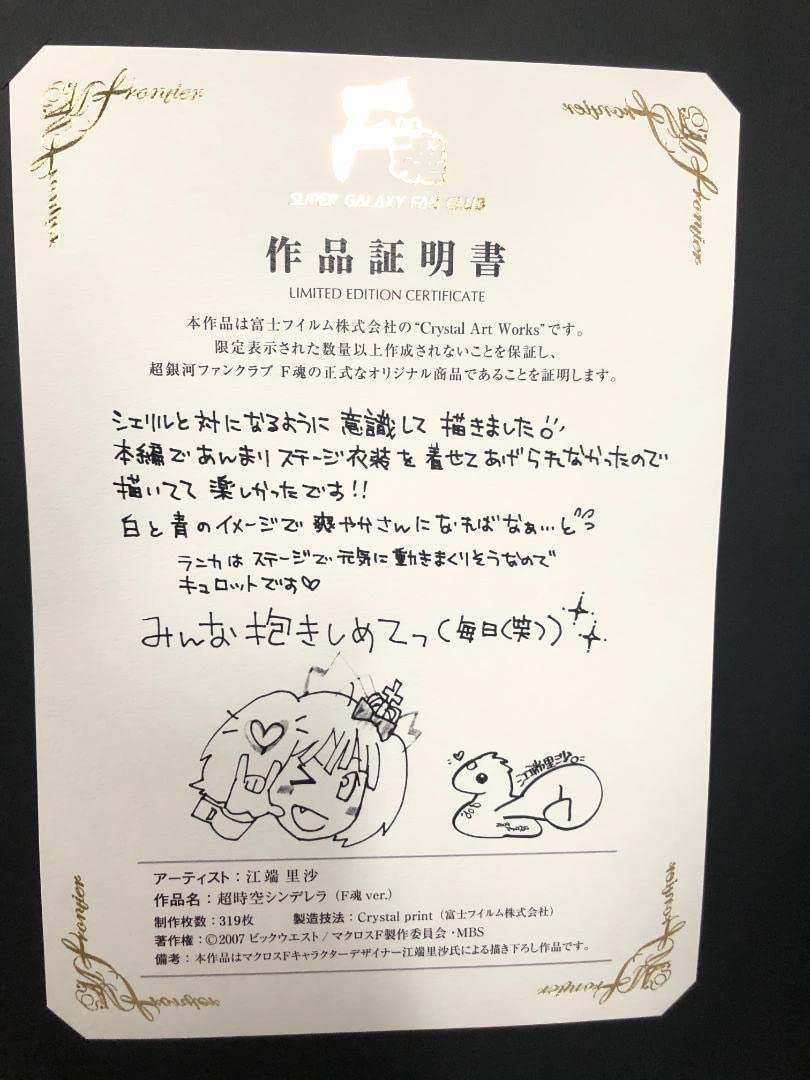 Frontier
Frontier
Frontier
Frontier
F魂
SUPER GALAXY FAN CLUB
作品証明書
LIMITED EDITION CERTIFICATE
本作品は富士フイルム株式会社の“Crystal Art Works”です。
限定表示された数量以上作成されないことを保証し、
超銀河ファンクラブ F魂の正式なオリジナル商品であることを証明します。
シェリルと対になるように意識して描きました
本編であんまりステージ衣装を着せてあげられなかったので
描いてて楽しかったです!!
白と青のイメージで爽やかさんになればなぁ…と
ランカはステージで元気に動きまくりそうなので
キュロットです♡
みんな抱きしめてっ(毎日(笑))
江端里沙
アーティスト：江端 里沙
作品名：超時空シンデレラ（F魂 ver.）
制作枚数：319枚 製造技法：Crystal print（富士フイルム株式会社）
著作権：©2007 ビックウエスト/マクロスF製作委員会・MBS
備考：本作品はマクロスFキャラクターデザイナー江端里沙氏による描き下ろし作品です。
Frontier
Frontier
Frontier
Frontier